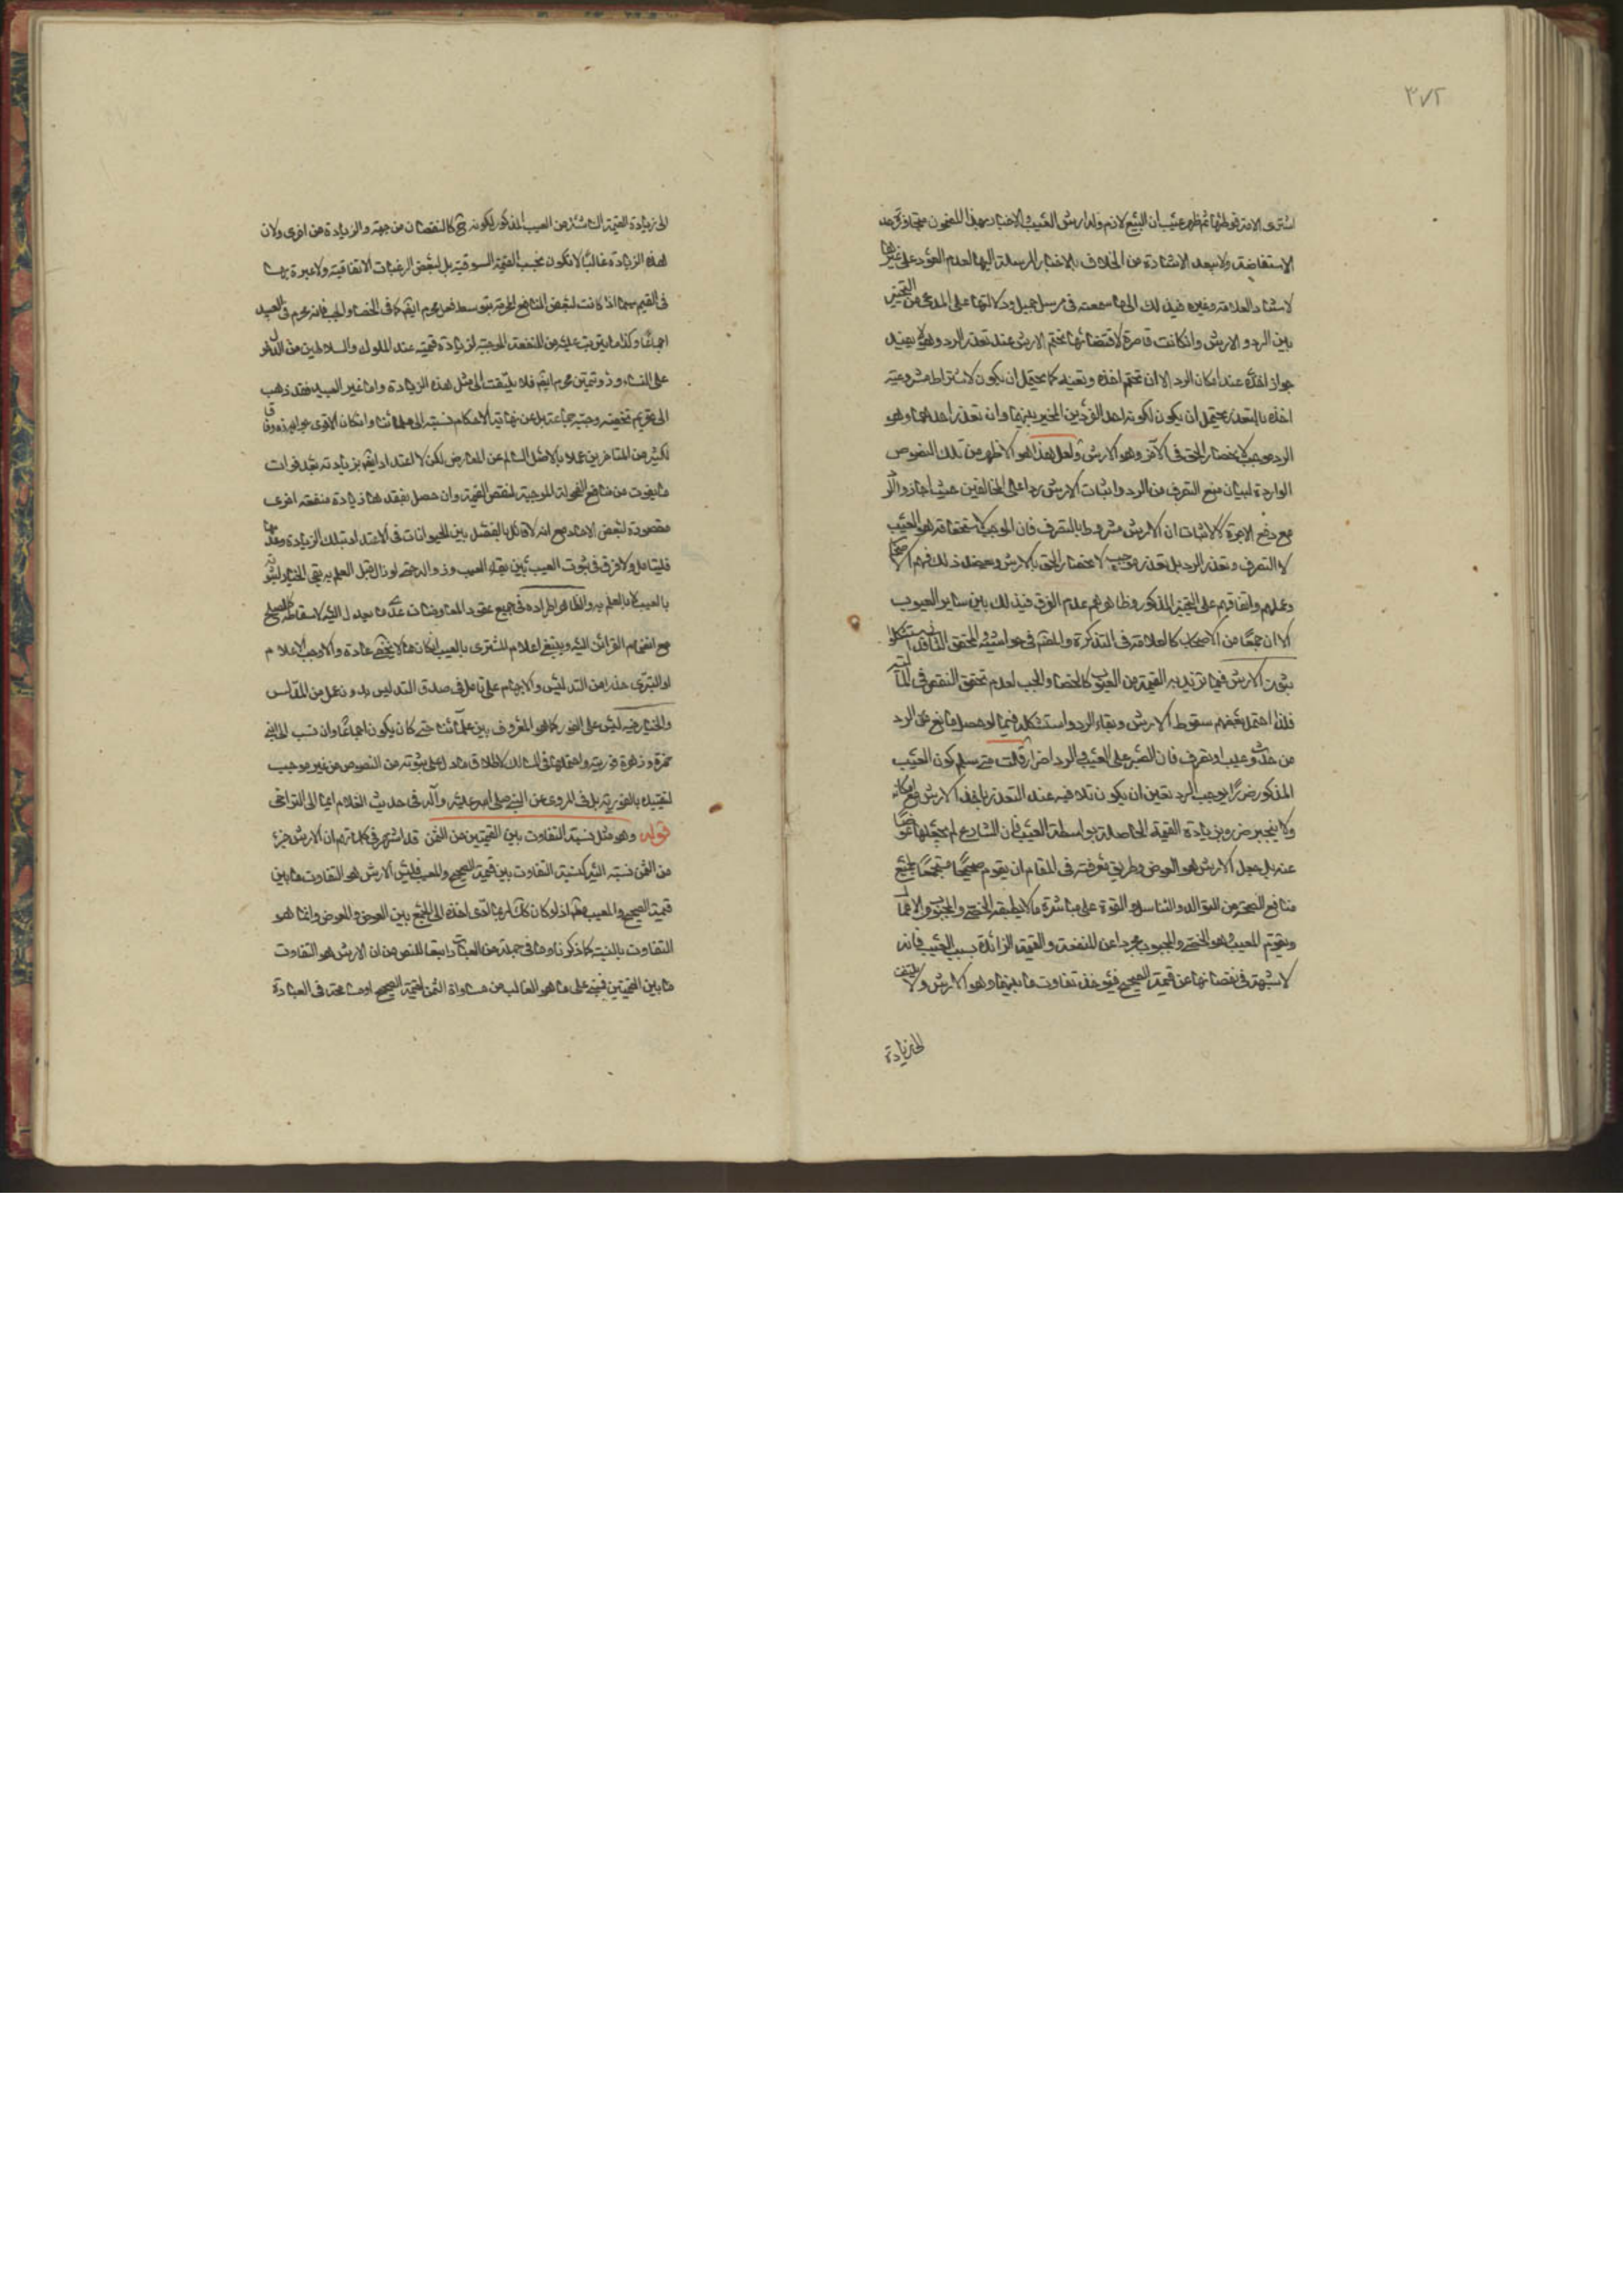 ٣٧٢
اشترى الامة فوطئها ثم ظهر عيب ان البيع لازم وله ارش العيب والاخبار بهذا المضمون متجاوزة حد
الاستفاضة ولا يبعد الاشارة من الخلاف بالاخبار المرسلة اليها لعدم العثور على غيرها
لاسناد العلامة وغيره ذلك الى ما سمعته في مرسل جميل ودلالتها على المدعى من التخيير
بين الرد والارش وان كانت قاصرة لاقتضائها تحتم الارش عند تعذر الرد وهو لا يفيد
جواز اخذه عند امكان الرد الا ان تحتم اخذه وتعينه كما يحتمل ان يكون لاشتراط مشروعية
اخذه بالتعذر يحتمل ان يكون لكونه احد الفردين المخير بينهما وان تعذر احدهما وهو
الرد موجب لانحصار الحق في الآخر وهو الارش ولعل هذا هو الاظهر من تلك النصوص
الواردة لبيان منع التصرف من الرد واثبات الارش ردا على المخالفين حيث اجازوا الرد
مع دفع الاجرة لا لاثبات ان الارش مشروط بالتصرف فان الموجب لاستحقاقه هو العيب
لا التصرف وتعذر الرد بل تعذره موجب لانحصار الحق بالارش ويعضد ذلك فهم الاصحاب
وعملهم واتفاقهم على التخيير المذكور وظاهرهم عدم الفرق في ذلك بين ساير العيوب
الا ان جمعا من الاصحاب كالعلامة في التذكرة والمقدم في حواشيه والمحقق الثاني استشكلوا
ثبوت الارش فيما تزيد به القيمة من العيوب كالخصاء والجب لعدم تحقق النقص في المالية
فلذا احتمل بعضهم سقوط الارش وبقاء الرد واستشكله فيما لو حصل مانع من الرد
من حدث وعيب او تصرف فان الصبر على العيب والرد اضرار قلت متى سلم كون العيب
المذكور ضررا يوجب الرد تعين ان يكون تلافيه عند التعذر باخذ الارش مع امكانه
ولا ينجبر ضرره بزيادة القيمة الحاصلة بواسطة العيب فان الشارع لم يجعلها عوضا
عنه بل جعل الارش هو العوض وطريق معرفته في المقام ان يقوم صحيحا مستجمعا لجميع
منافع الصحة من التوالد والتناسل والقوة على مباشرة ما لا يطيقه الخصي والمجبوب والاعمال
ويقوم المعيب وهو الخصي والمجبوب مجردا عن المنفعة والقيمة الزائدة بسبب العيب فانه
لا شبهة في نقصانها عن قيمة الصحيح فيؤخذ تفاوت ما بينهما وهو الارش ولا يلتفت
الى زيادة
الى زيادة القيمة الناشئة من العيب المذكور لكونه ح كالنقصان من جهة والزيادة من اخرى ولان
هذه الزيادة غالبا لا تكون بحسب القيمة السوقية بل لبعض الرغبات الاتفاقية ولا عبرة بها
في القيم سيما اذا كانت لبعض المنافع المحرمة بتوسط فعل محرم ايضا كما في الخصاء والجب فانه محرم في العبيد
اجماعا وكذا ما يترتب عليه من المنفعة الموجبة لزيادة قيمته عند الملوك والسلاطين من الدخول
على النساء وذوتميتن محرم ايضا فلا يلتفت الى مثل هذه الزيادة واما غير العبيد فقد ذهب
الى تحريم تخصيته وجبه جماعة بل عن نهاية الاحكام نسبته الى علمائنا وان كان الاقوى جوازه وفاقا
لكثير من المتاخرين عملا بالاصل السالم عن المعارض لكن لا اعتداد ايضا بزيادته بعد فوات
ما يفوت من منافع الفحولة الموجبة لنقص القيمة وان حصل بفقدها زيادة منفعة اخرى
مقصودة لبعض الاحاد مع انه لا قائل بالفصل بين الحيوانات في الاعتداد بتلك الزيادة وعدمها
فليتامل ولا فرق في ثبوت العيب بين بقاء العيب وزواله حتى لو زال قبل العلم به بقي الخيار لثبوته
بالعيب لا بالعلم به والظاهر اطراده في جميع عقود المعاوضات عدا ما يعدل اليه لاسقاطه كالصلح
مع انضمام القرائن اليه وينبغي اعلام المشتري بالعيب ان كان مما لا يخفى عادة والا وجب الاعلام
او التبري حذرا من التدليس والابهام على تامل في صدق التدليس بدون عمل من المدلس
والخيار فيه ليس على الفور كما هو المعروف بين علمائنا حتى كاد يكون اجماعا وان نسب الى ابن
حمزة وزهرة فوريته واحتملها في المسالك لاطلاق ما دل على ثبوته من النصوص من غير موجب
لتقييده بالفورية بل في المروي عن النبي صلى الله عليه وآله في حديث الغلام ايماء الى التراخي
قوله وهو مثل نسبة التفاوت بين القيمتين من الثمن قد اشتهر في كلماتهم ان الارش جزء
من الثمن نسبته اليه كنسبة التفاوت بين قيمة الصحيح والمعيب فليس الارش هو التفاوت ما بين
قيمة الصحيح والمعيب اذ لو كان كك لربما ادى اخذه الى الجمع بين العوض والمعوض وانما هو
التفاوت بالنسبة كما ذكرنا وما في جملة من العبارات تبعا للنصوص من ان الارش هو التفاوت
ما بين القيمتين فمبني على ما هو الغالب من مساواة الثمن لقيمة الصحيح او مسامحة في العبارة